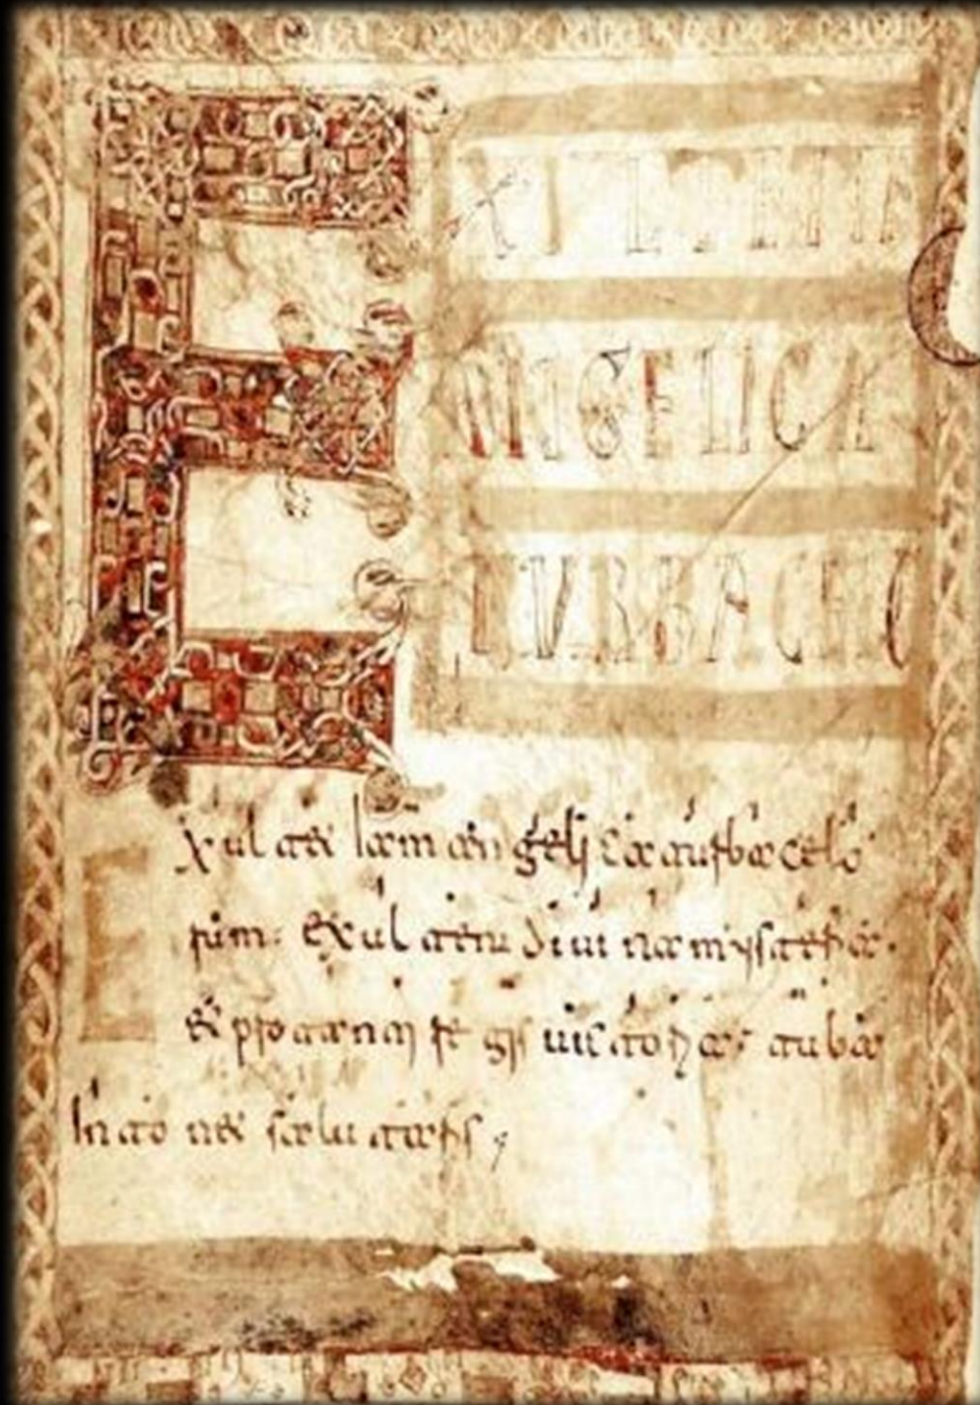 EXULTET IA
M ANGELICA
TURBA CELO
Exultet iam angelica turba celo
rum: Exultent divina mysteria.
Et pro tanti regis victoria: tuba
intonet salutaris;